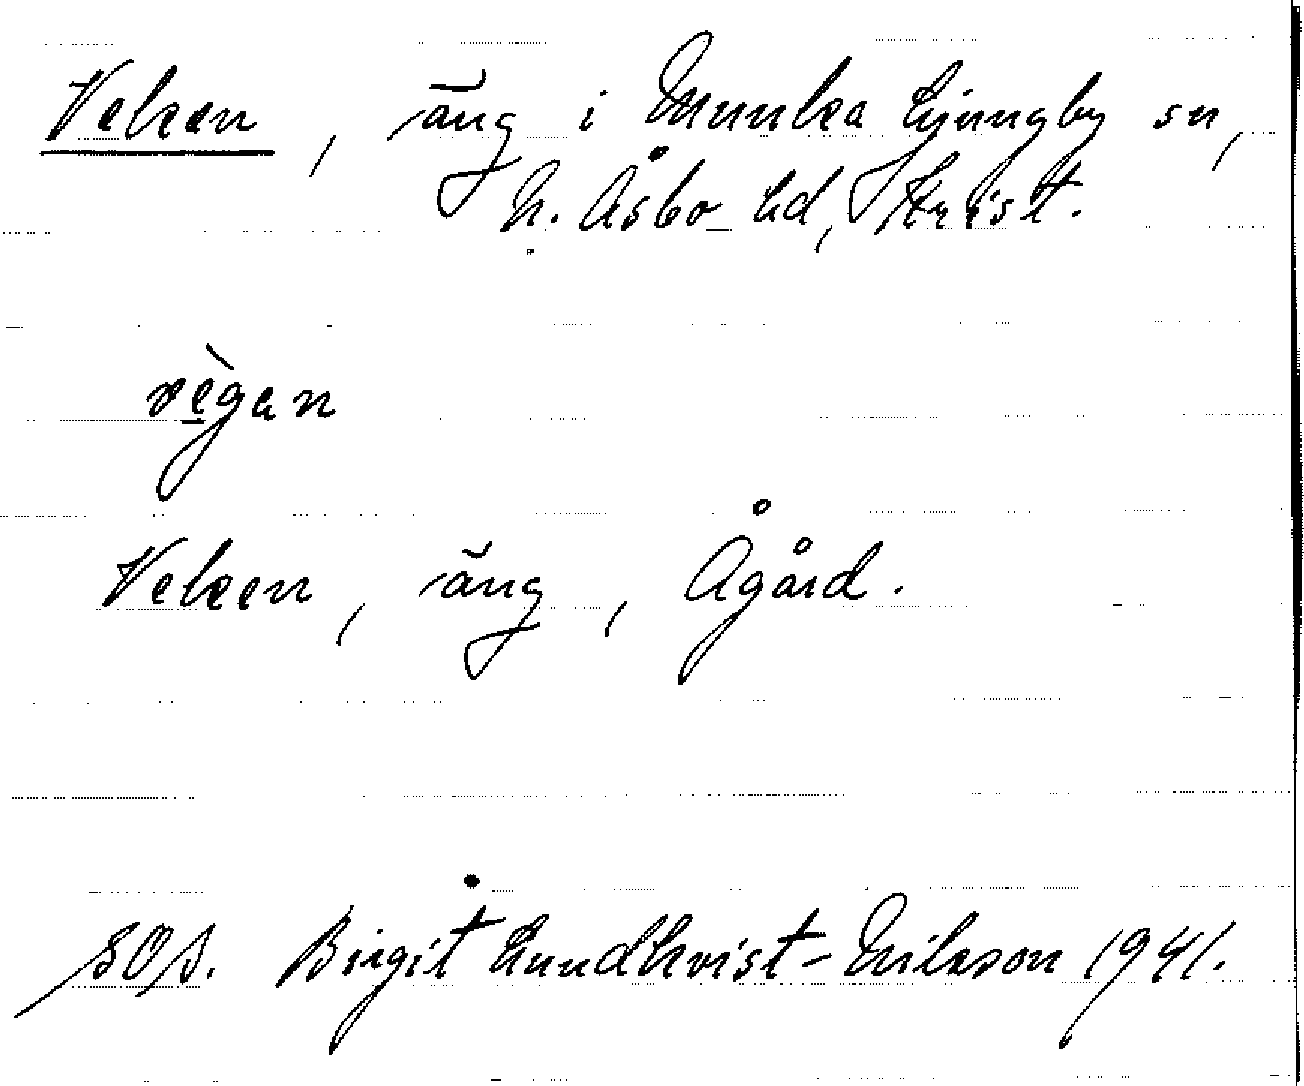 Veken, äng i Munka Ljungby sn,
N. Åsbo hd, Krist.
vègan
Veken, äng, Ågård.
SOS. Birgit Lundkvist-Nilsson 1941.